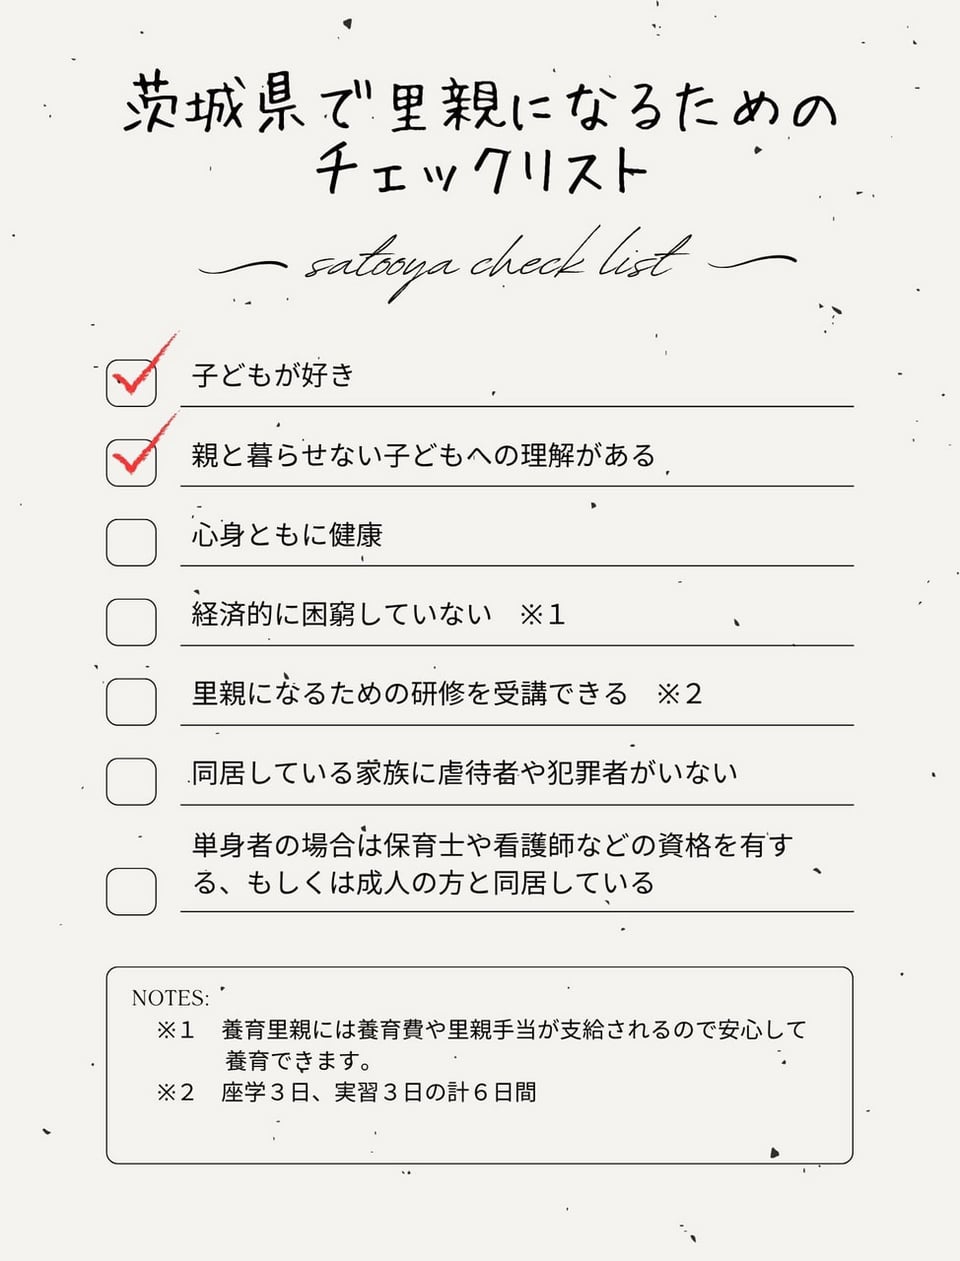 茨城県で里親になるための
チェックリスト
satooya check list
子どもが好き
親と暮らせない子どもへの理解がある
心身ともに健康
経済的に困窮していない　※１
里親になるための研修を受講できる　※２
同居している家族に虐待者や犯罪者がいない
単身者の場合は保育士や看護師などの資格を有す
る、もしくは成人の方と同居している
NOTES:
※１　養育里親には養育費や里親手当が支給されるので安心して
養育できます。
※２　座学３日、実習３日の計６日間